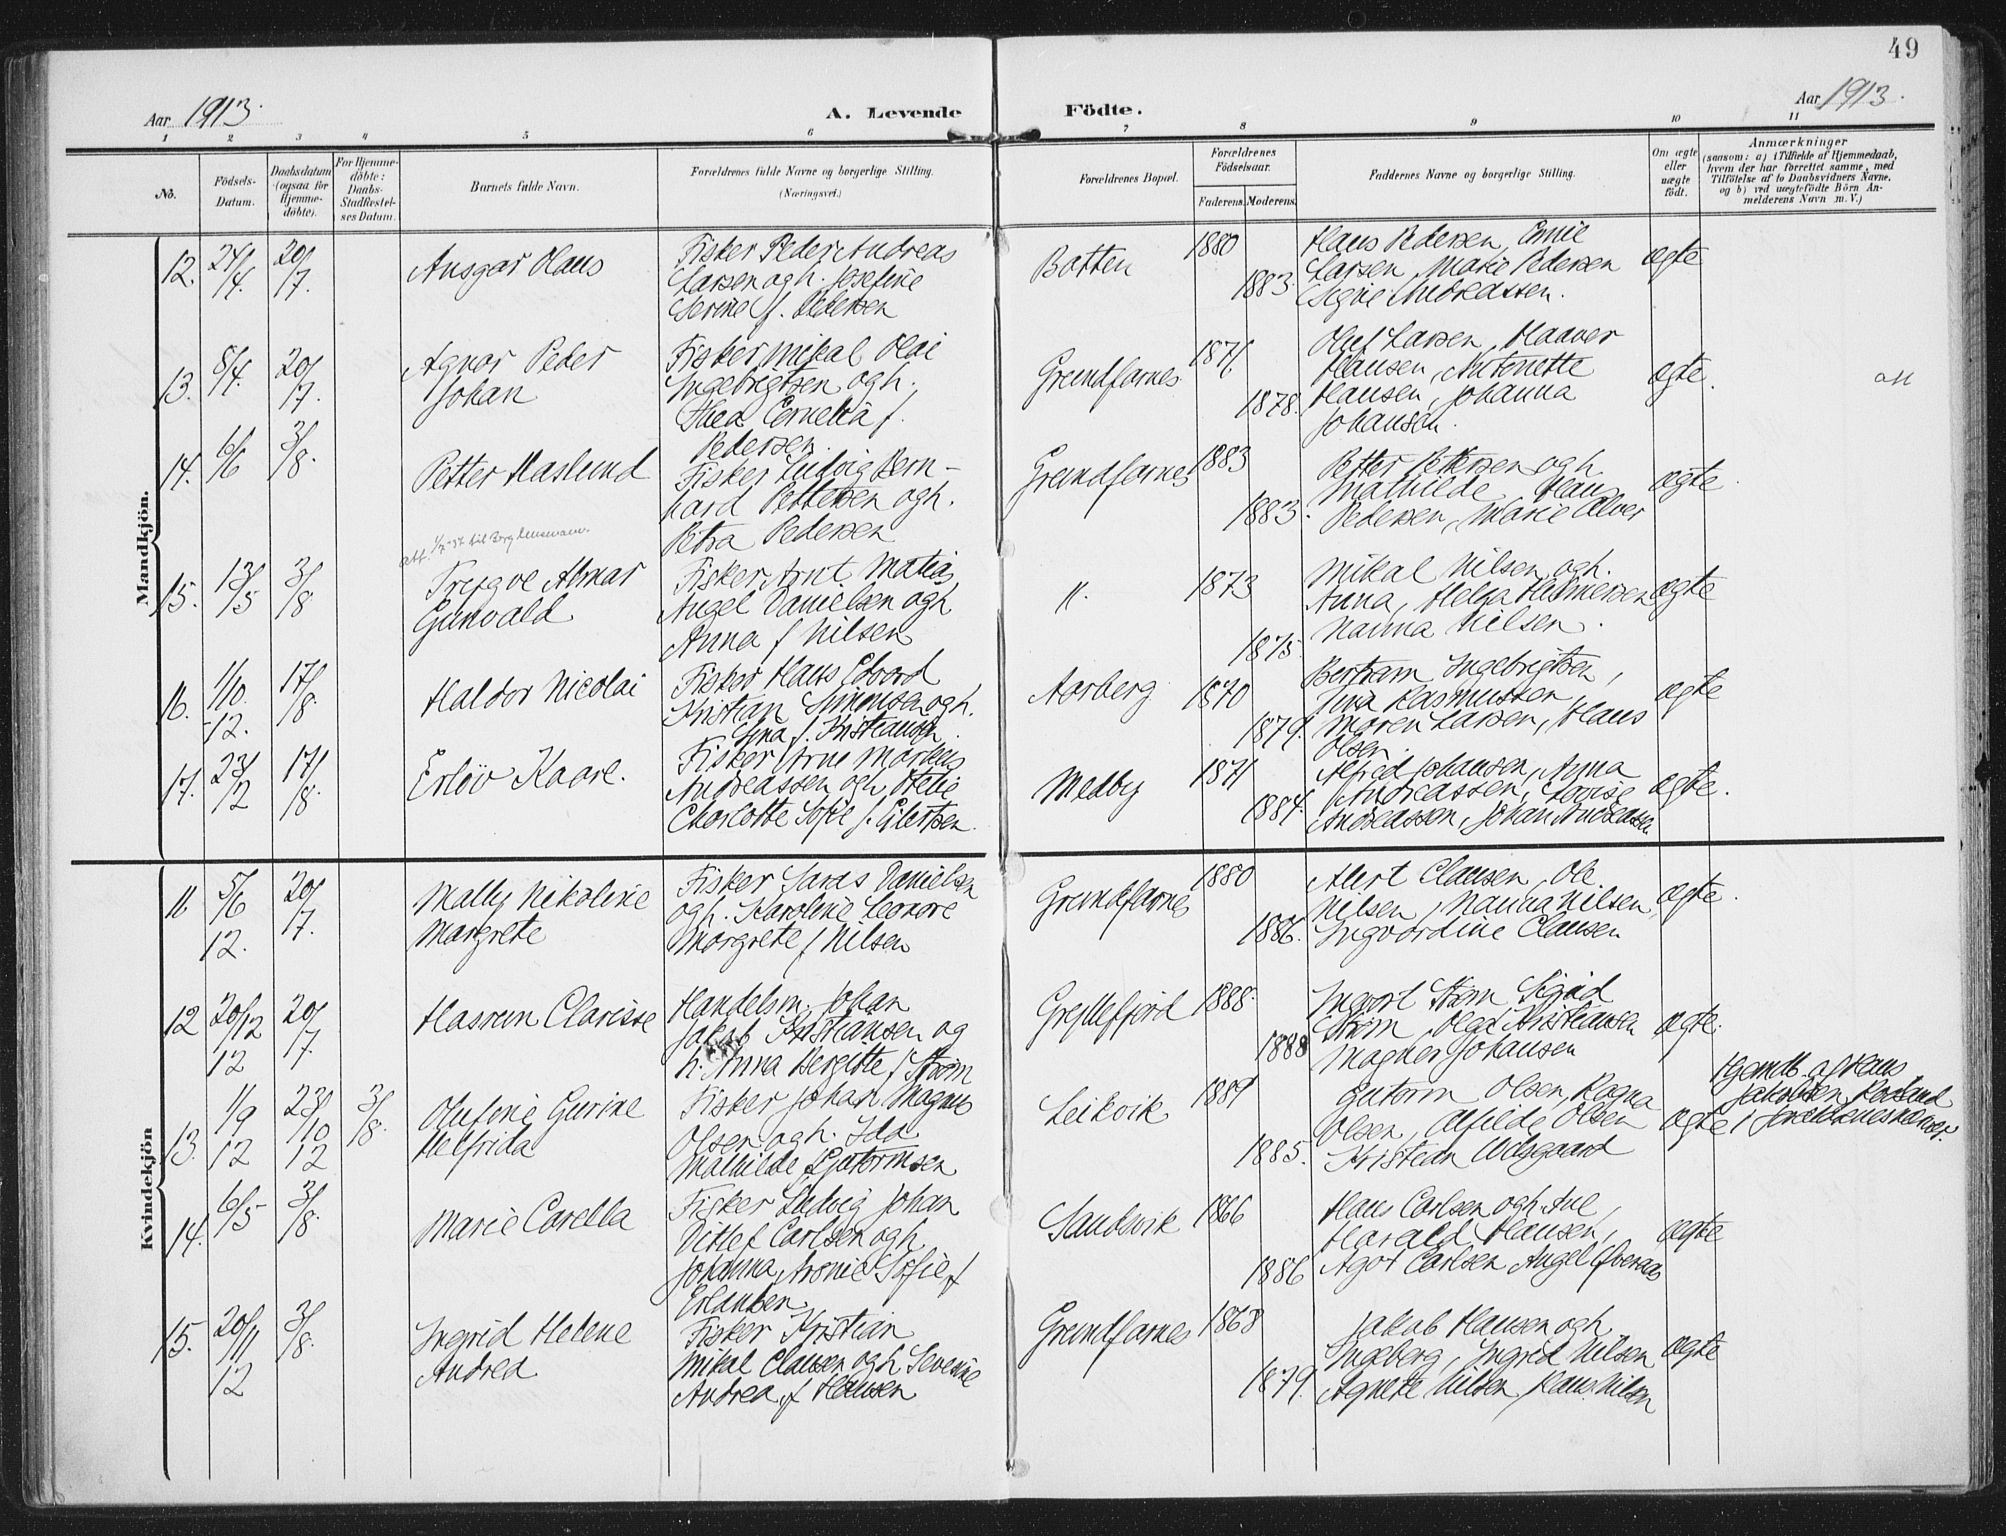 49
Aar 1913.
A. Levende
Födte.
Aar 1913.
1 2 3 4 5 6 7 8 9 10 11
No.
Födsels-
Datum.
Daabsdatum
(ogsaa for
Hjemme-
döbte).
For Hjemme-
döbte:
Daabs-
Stadfestel-
ses Datum.
Barnets fulde Navn.
Forældrenes fulde Navne og borgerlige Stilling.
(Næringsvei.)
Forældrenes Bopæl.
Forældrenes
Födselsaar.
Faderens. Moderens.
Faddernes Navne og borgerlige Stilling.
Om ægte
eller
uægte
födt.
Anmærkninger
(saasom: a) i Tilfælde af Hjemmedaab,
hvem der har forrettet samme, med
Tilföielse af to Daabsvidners Navne.
og b) ved uægtefödte Börn An-
melderens Navn m. V.)
Mandkjön.
12. 24/4. 20/7. Ansgar Klaus
Fisker Peder Andreas
Larsen og h. Josefine
Serine f. Pedersen
Botten 1880 1883.
Hans Pedersen, Emil
Larsen, Marie Pedersen
Signe Andreassen.
ægte
13. 8/4. 20/7. Agnar Peder
Johan
Fisker Mikal Olai
Ingebrigtsen og h.
Thea Cornelia f.
Pedersen.
Grundfarnes 1876 1878.
Oluf Larsen, Haaver
Hansen, Antonette
Hansen, Johanna
Johansen.
ægte.
14. 6/6 3/8. Petter Haslund
Fisker Ludvig Bern-
hard Pettersen og h.
Petra Pedersen
Grundfarnes 1883 1883.
Petter Pettersen og h.
Mathilde, Hans
Pedersen, Marie Alver
ægte.
15. 13/5 3/8 Trygve Almar
Gunvald
Fisker Arnt Matias
Angel Danielsen og h.
Anna f Nilsen
11. 1873 1875.
Mikal Nilsen og h.
Anna, Helga Hilmersen
Nanna Nilsen.
ægte
16. 1/10. -12. 17/8. Haldor Nicolai
Fisker Hans Edvard
Kristian Simonsen og h.
Gina f. Kristiansen.
Aarberg. 1870 1879.
Bertram Ingebrigtsen,
Jina Rasmussen,
Maren Larsen, Hans
Olsen.
ægte
17. 23/2 17/8. Erlöv Kaare.
Fisker Arne Markus
Andreassen og h.
Charlotte Sofie f. Eilertsen.
Medby 1871 1884.
Alfred Johansen, Anna
Andreassen, Lovise
Andreassen, Johan Andreassen
ægte.
Kvindekjön
11 5/6 12. 20/7. Mally Nikoline
Margrete
Fisker Laras Danielsen
og h. Karoline Leonore
Margrete f Nilsen
Grundfarnes 1880 1886.
Alert Clausen, Ole
Nilsen, Nanna Nilsen,
Ingvardine Clausen
ægte.
12 20/12 12 20/7. Hasrun Clarisse
Handelsm. Johan
Jakob Kristiansen og
h. Anna Bergitte f. Ström
Gryllefjord 1888. 1888
Ingvart Ström, Sigrid
Ström, Olga Kristiansen
Magner Johansen
ægte.
13. 1/9 12 23/10 12 3/8. Olufine Gurine
Helfrida
Fisker Johan Magnus
Olsen og h. Ida
Mathilde f Gutormsen
Leikvik 1889 1885.
Gutorm Olsen, Ragna
Olsen, Alfilde Olsen
Kristean Odsgaard
ægte
Hjemdb. af Hans
Jakobsen
14. 6/5 3/8. Marie Carella
Fisker Ludvig Johan
Ditlef Carlsen og h.
Johanna Aronie Sofie f
Erlandsen
Sandsvik 1866 1886
Hans Carlsen og h. Ane,
Harald Hansen,
Agot Carlsen Angel Overaas
ægte
15. 20/11 12 3/8. Ingrid Helene
Andrea
Fisker Kristian
Mikal Clausen og h. Severine
Andrea f Hansen
Grundfarnes 1868 1879.
Jakob Hansen og h.
Ingeberg, Ingrid Nilsen
Agnete Nilsen, Hans Nilsen
ægte